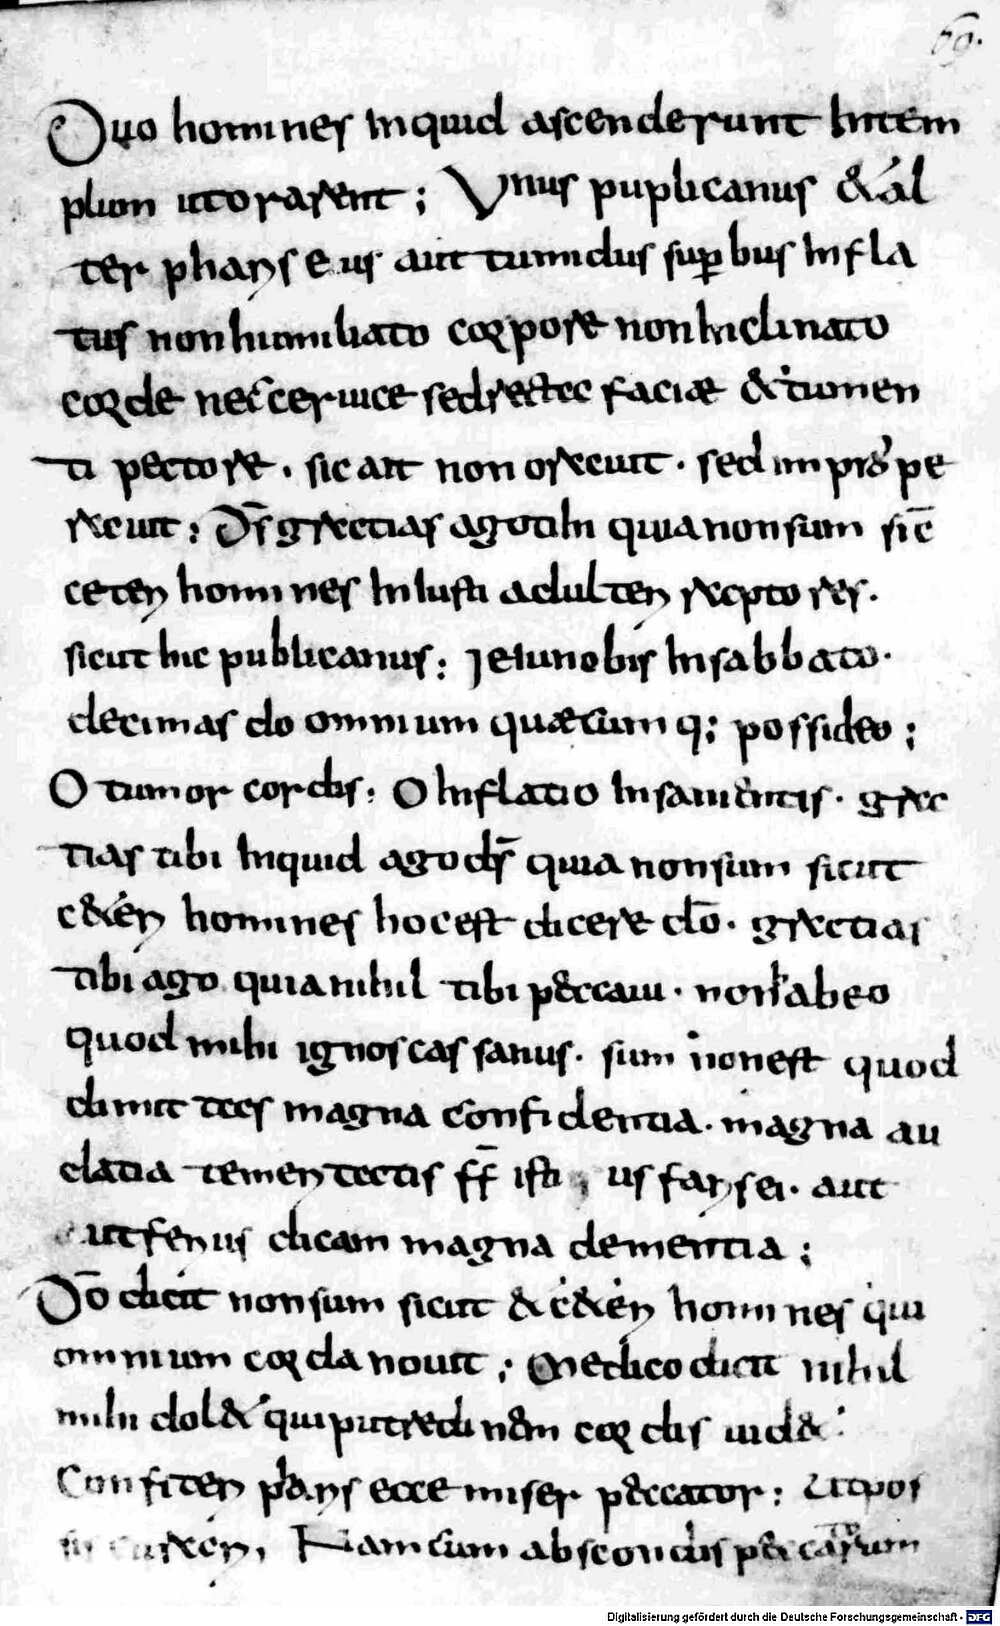 69.
Duo homines inquid ascenderunt intem
plum utorarent; Unus puplicanus & al
ter pharyseus aut tumidus sup̄bus infla
tus non humiliato corpore non inclinato
corde nec cervice sed recta faciae & tumen
ti pectore. sic ait non oravit. sed impro pe
ravit; Ds̄ gratias ago tibi quia non sum sic̄
ceteri homines iniusti adulteri raptores.
sicut hic publicanus; Jeiuno bis in sabbato.
decimas do omnium quaecumq; possideo;
O tumor cordis; O inflatio insanientis. gra
tias tibi inquid ago ds̄ quia non sum sicut
c&eri homines hoc est dicere dō. gratias
tibi ago quia nihil tibi peccavi. non habeo
quod mihi ignoscas sanus. sum non est quod
dimittas magna confidentia. magna au
datia temeritatis ff̄ isti us farysei. aut
ut ferius dicam magna dementia;
Dō dicit non sum sicut & c&eri homines qui
omnium corda novit; Medico dicit nihil
mihi dol& qui putredinem cordis vid&.
Confiteri pharys ecce miser peccator; Ut pos
sis curari, Nam cum absconditis peccatorum